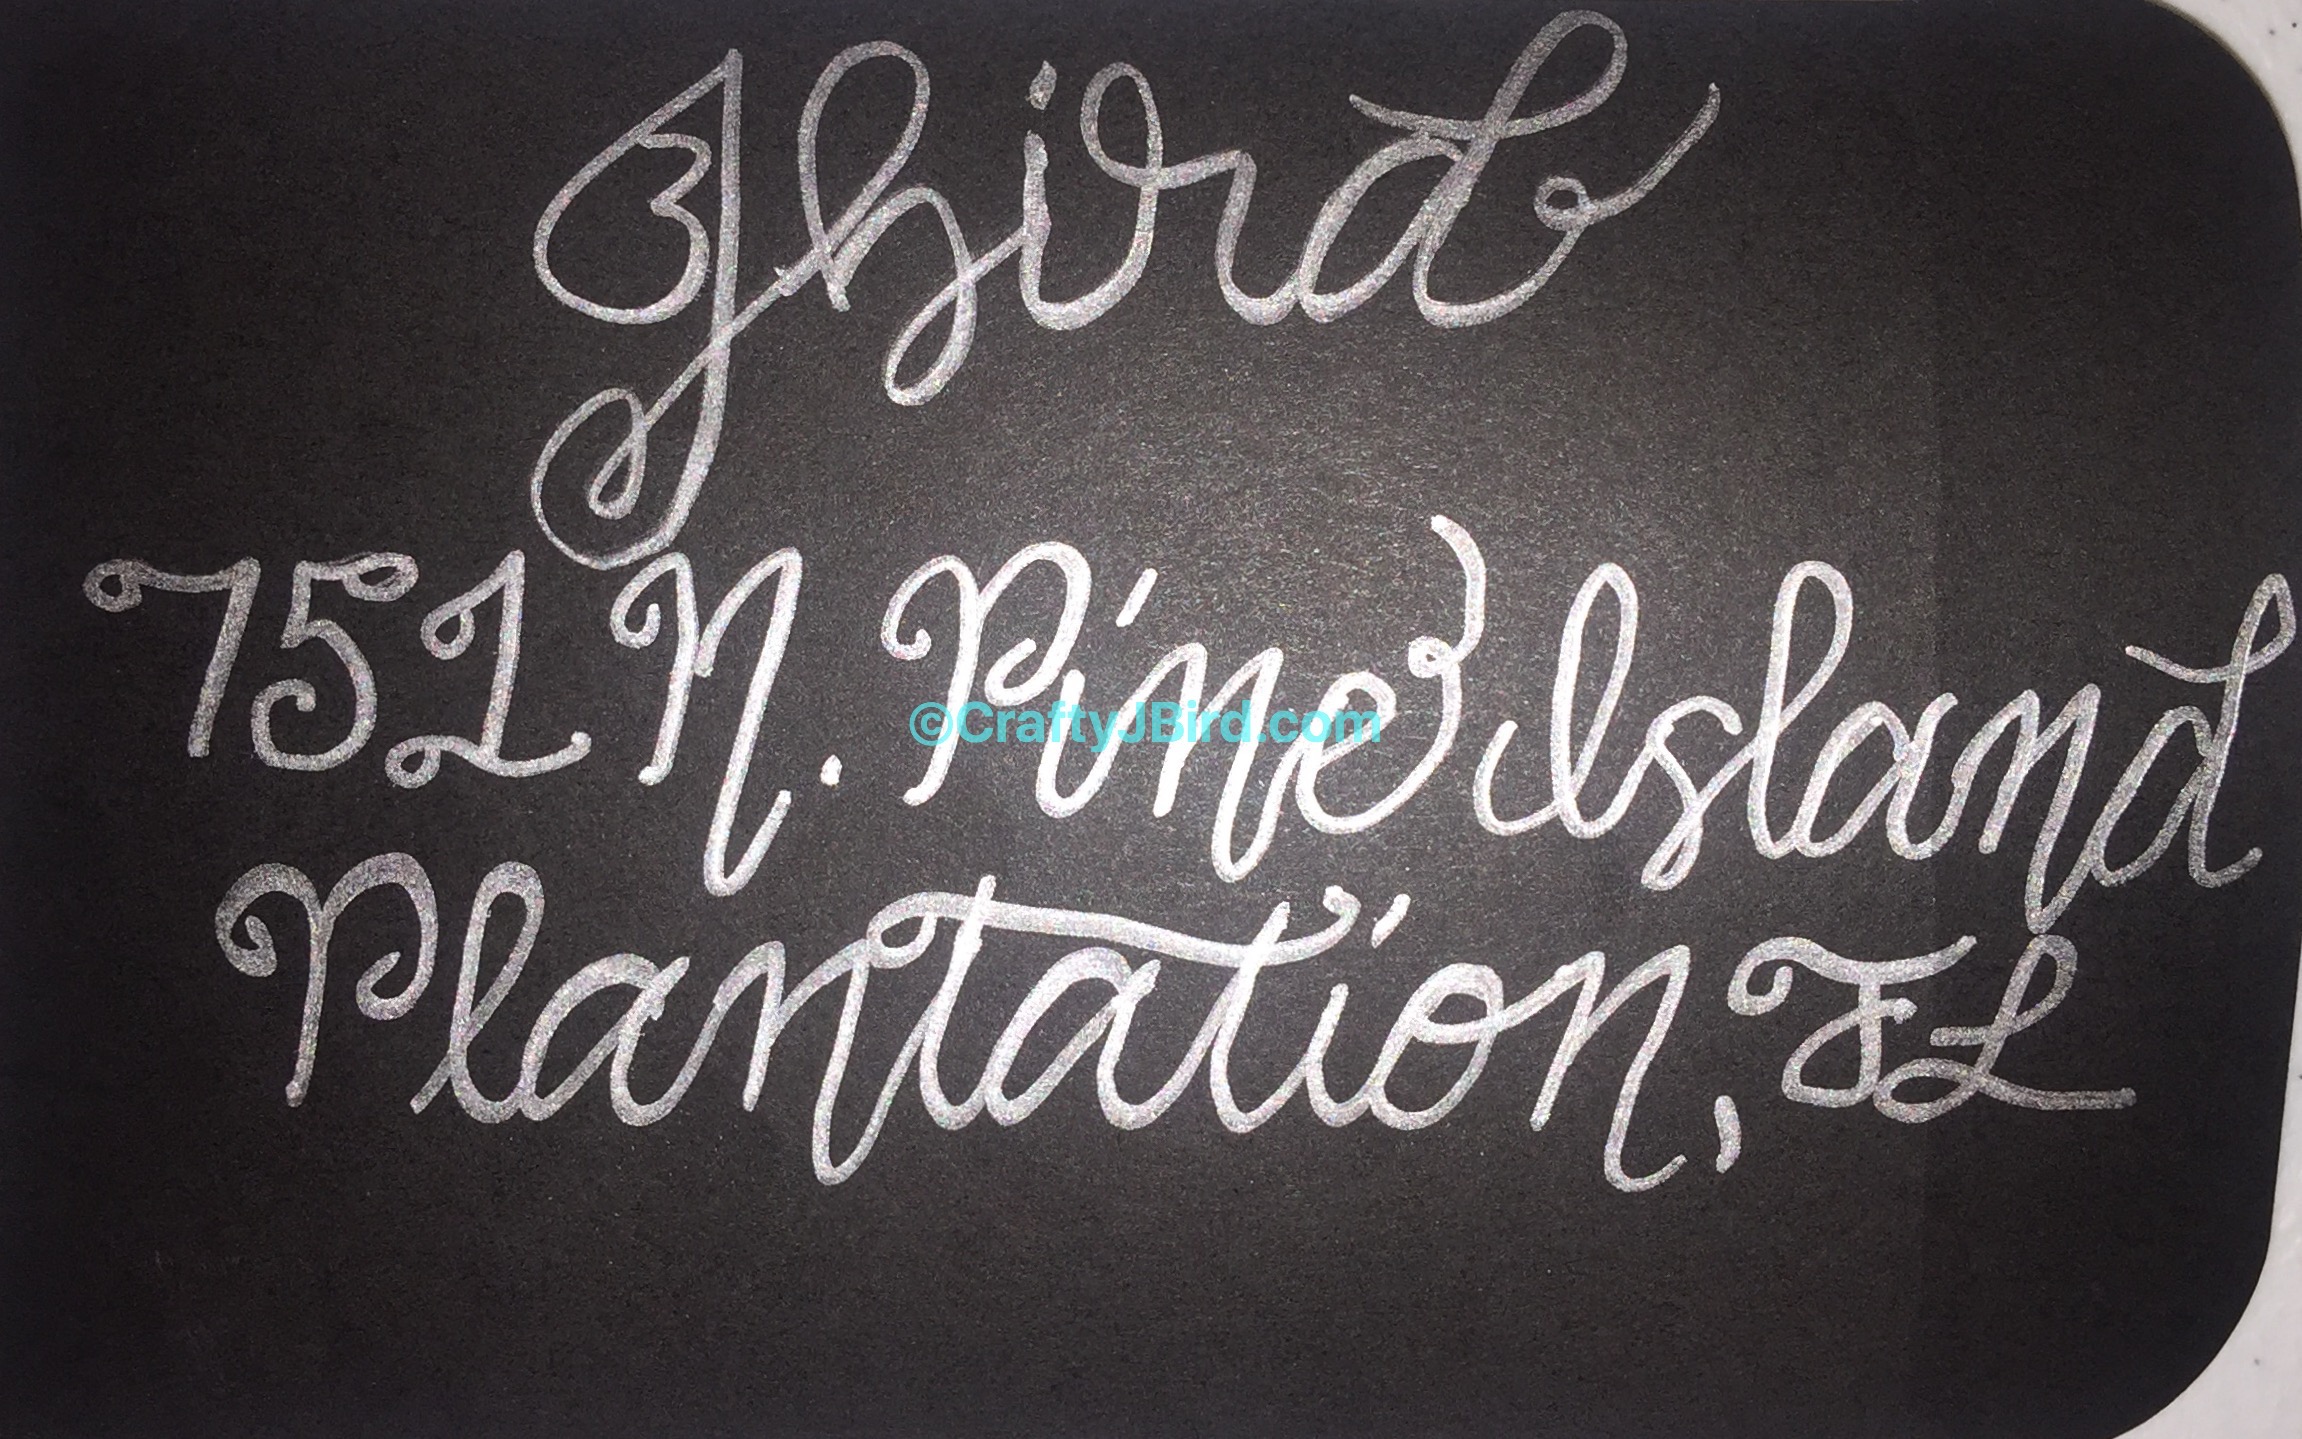 Third
751 N. Pine Island
©CraftyJBird.com
Plantation, FL